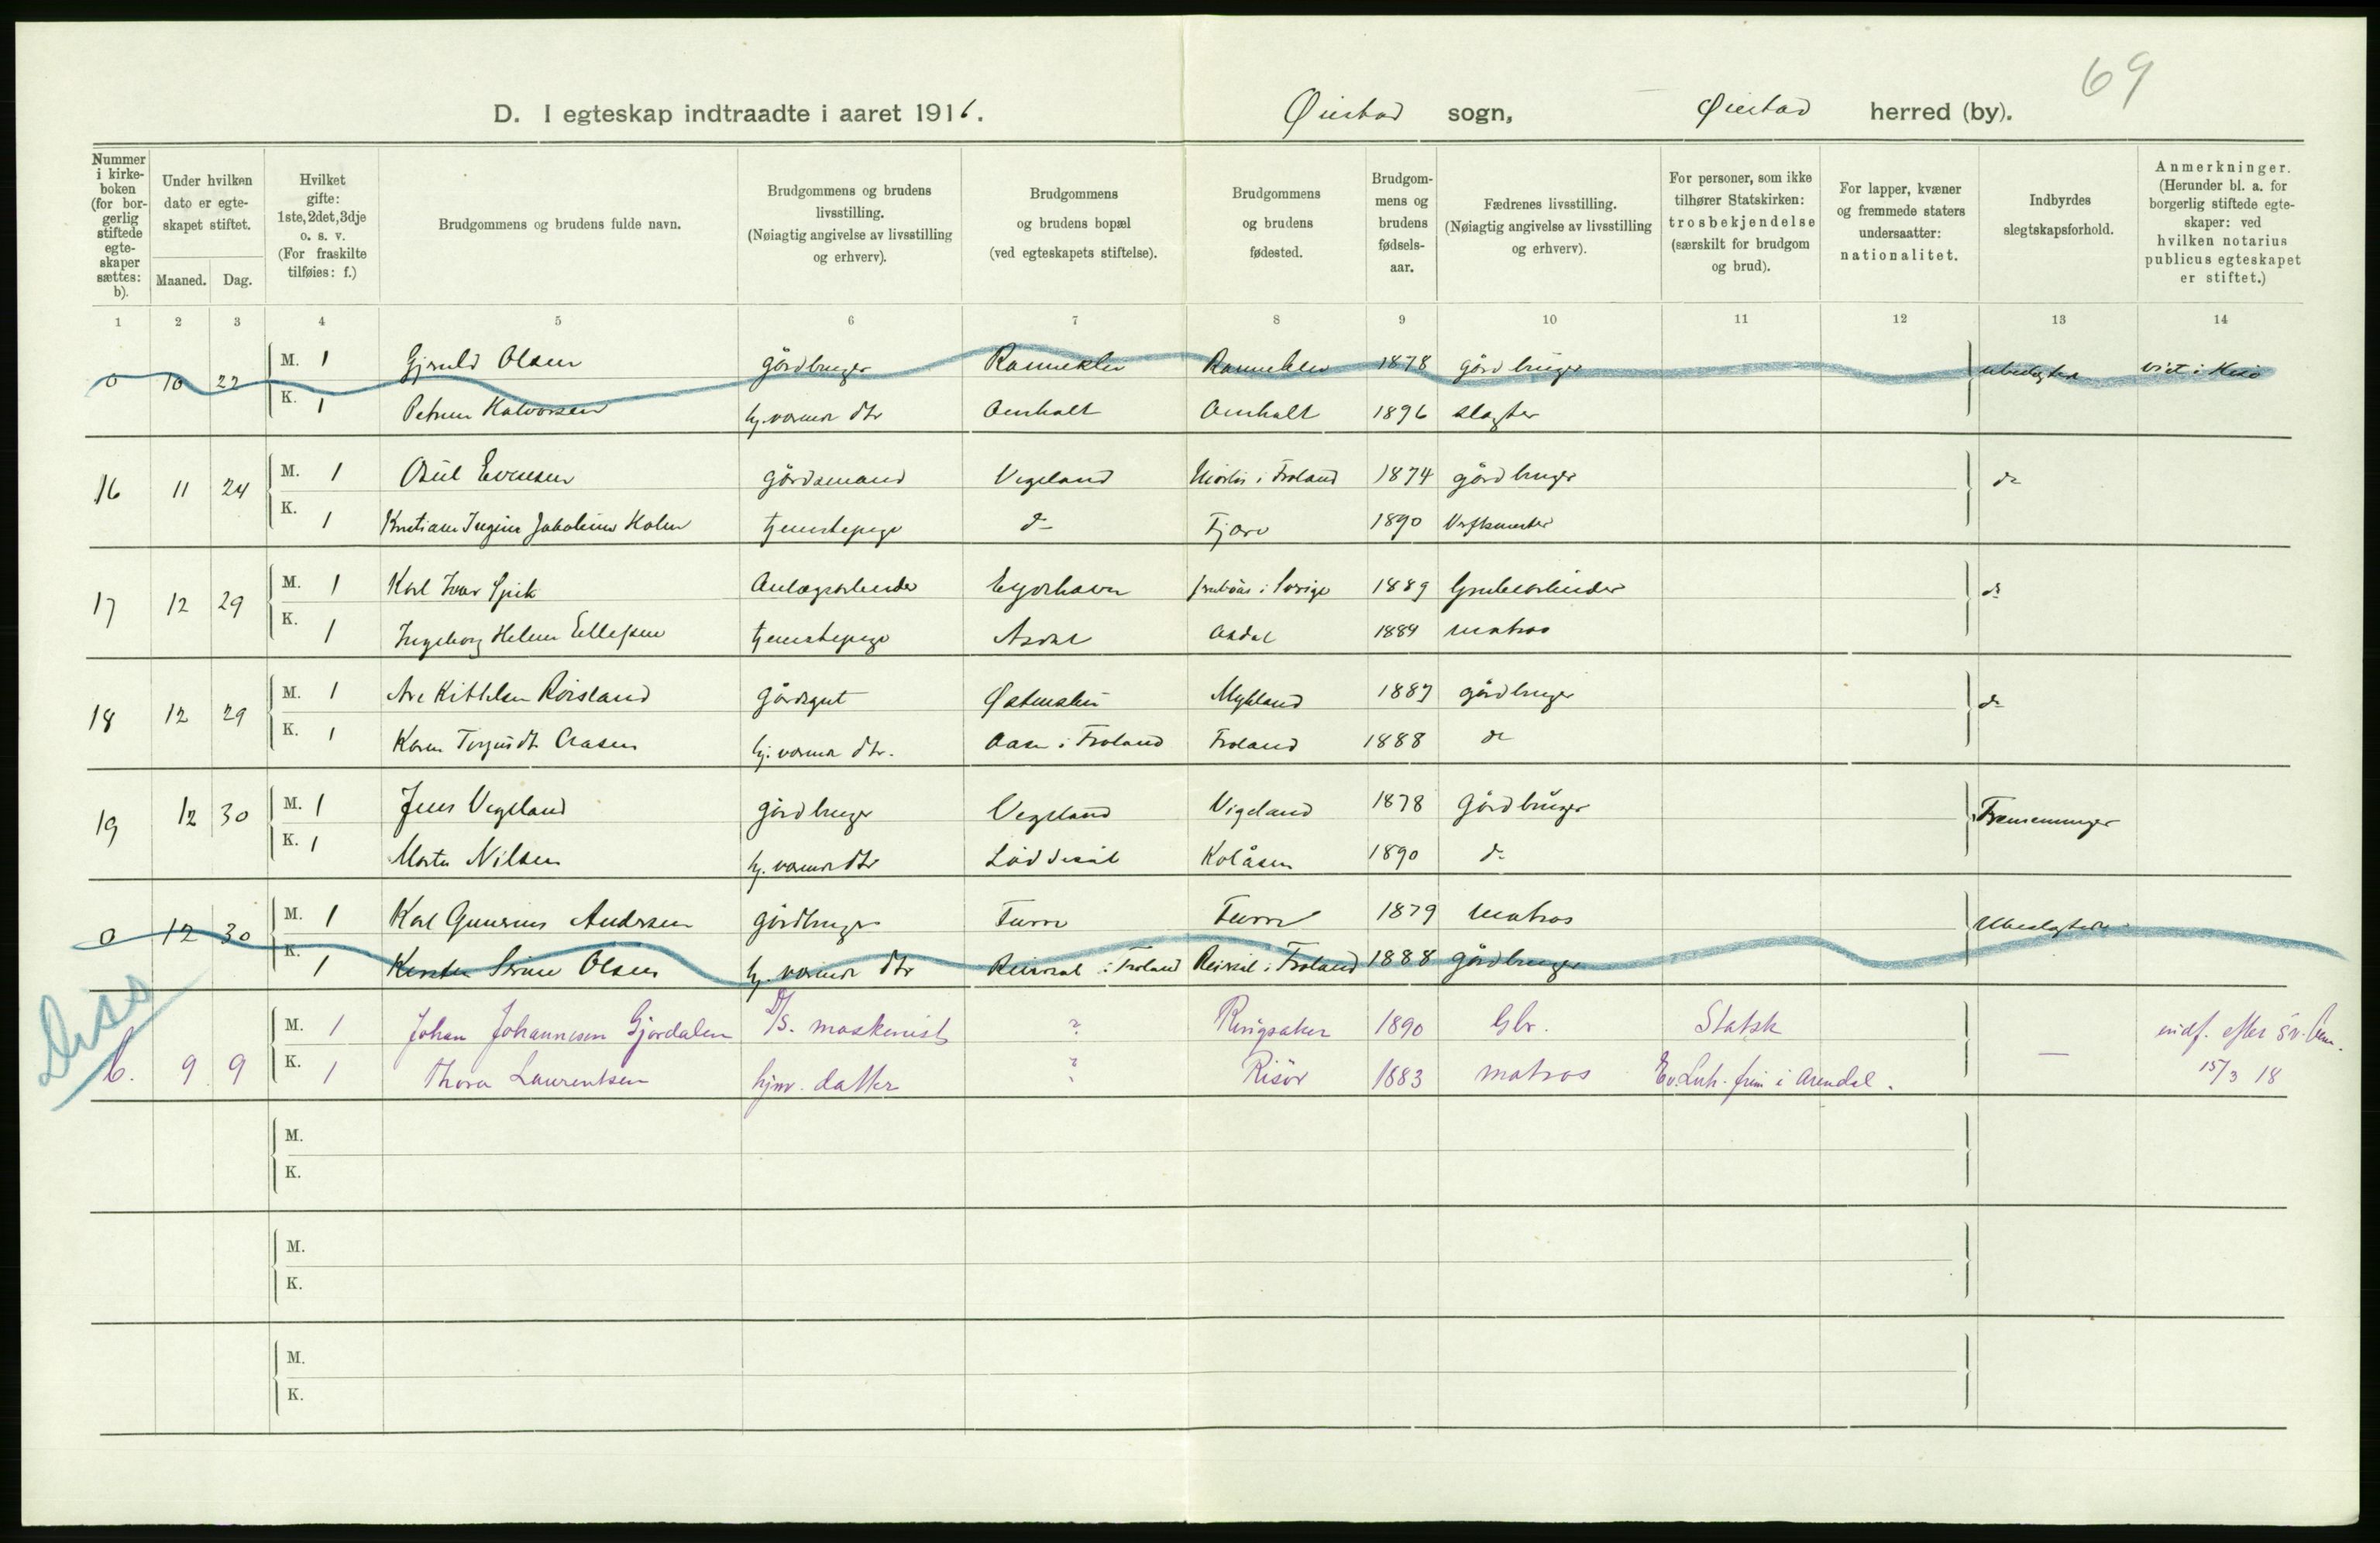 69
D. I egteskap indtraadte i aaret 1916. Øiestad sogn, Øiestad herred (by).
Nummer i kirkeboken (for borgerlig stiftede egteskaper sættes: b).
Under hvilken dato er egteskapet stiftet.
Maaned. Dag.
Hvilket gifte: 1ste, 2det, 3dje o. s. v. (For fraskilte tilføies: f.)
Brudgommens og brudens fulde navn.
Brudgommens og brudens livsstilling. (Nøiagtig angivelse av livsstilling og erhverv).
Brudgommens og brudens bopæl (ved egteskapets stiftelse).
Brudgommens og brudens fødested.
Brudgommens og brudens fødselsaar.
Fædrenes livsstilling. (Nøiagtig angivelse av livsstilling og erhverv).
For personer, som ikke tilhører Statskirken: trosbekjendelse (særskilt for brudgom og brud).
For lapper, kvæner og fremmede staters undersaatter: nationalitet.
Indbyrdes slegtskapsforhold.
Anmerkninger. (Herunder bl. a. for borgerlig stiftede egteskaper: ved hvilken notarius publicus egteskapet er stiftet.)
1 2 3 4 5 6 7 8 9 10 11 12 13 14
0 10 22 M. 1 Gjeruld Olsen gårdbruger Ranneklev Ranneklev 1878 gårdbruger ubeslegtede
K. 1 Petrine Halvorsen hj. værende dtr Omholt Omholt 1896 slagter
16 11 24 M. 1 Osul Evensen gårdsmand Vegeland i Froland 1874 gårdbruger do
K. 1 Kristiane Jakobine Holm tjenestepige do Fjære 1890
17 12 29 M. 1 Karl Ivar Anlægsarbeider Eydehavn i Sverige 1889 Grubearbeider do
K. 1 Ingeborg Helene Ellefsen tjenestepige Asdal Asdal 1884 matros
18 12 29 M. 1 Ave Kittelsen Roisland gårdsgut Østensbu Mykland 1887 gårdbruger do
K. 1 Karen Aasen hj. værende dtr. Aasen i Froland Froland 1888 do
19 12 30 M. 1 Jens Vegeland gårdbruger Vegeland Vigeland 1878 Gårdbruger Tremenninger
K. 1 Marte Nilsen hj. værende dtr Løddesøl Kolåsen 1890 do
0 12 30 M. 1 Karl Gunerius Andersen gårdbruger Furre Furre 1879 matros Ubeslegtede
K. 1 Kirsten Serine Olsen hj. værende dtr i Froland i Froland 1888 gårdbruger
Diss
b. 9 9 M. 1 Johan Johannesen Gjørdalen D/S. maskenist ? Ringsaker 1890 Gbr. Statsk indf. efter
K. 1 Thora Laurentsen hjmv. datter ? Risør 1883 matros Ev. Luth. frim i Arendal. — 15/3 18
M.
K.
M.
K.
M.
K.